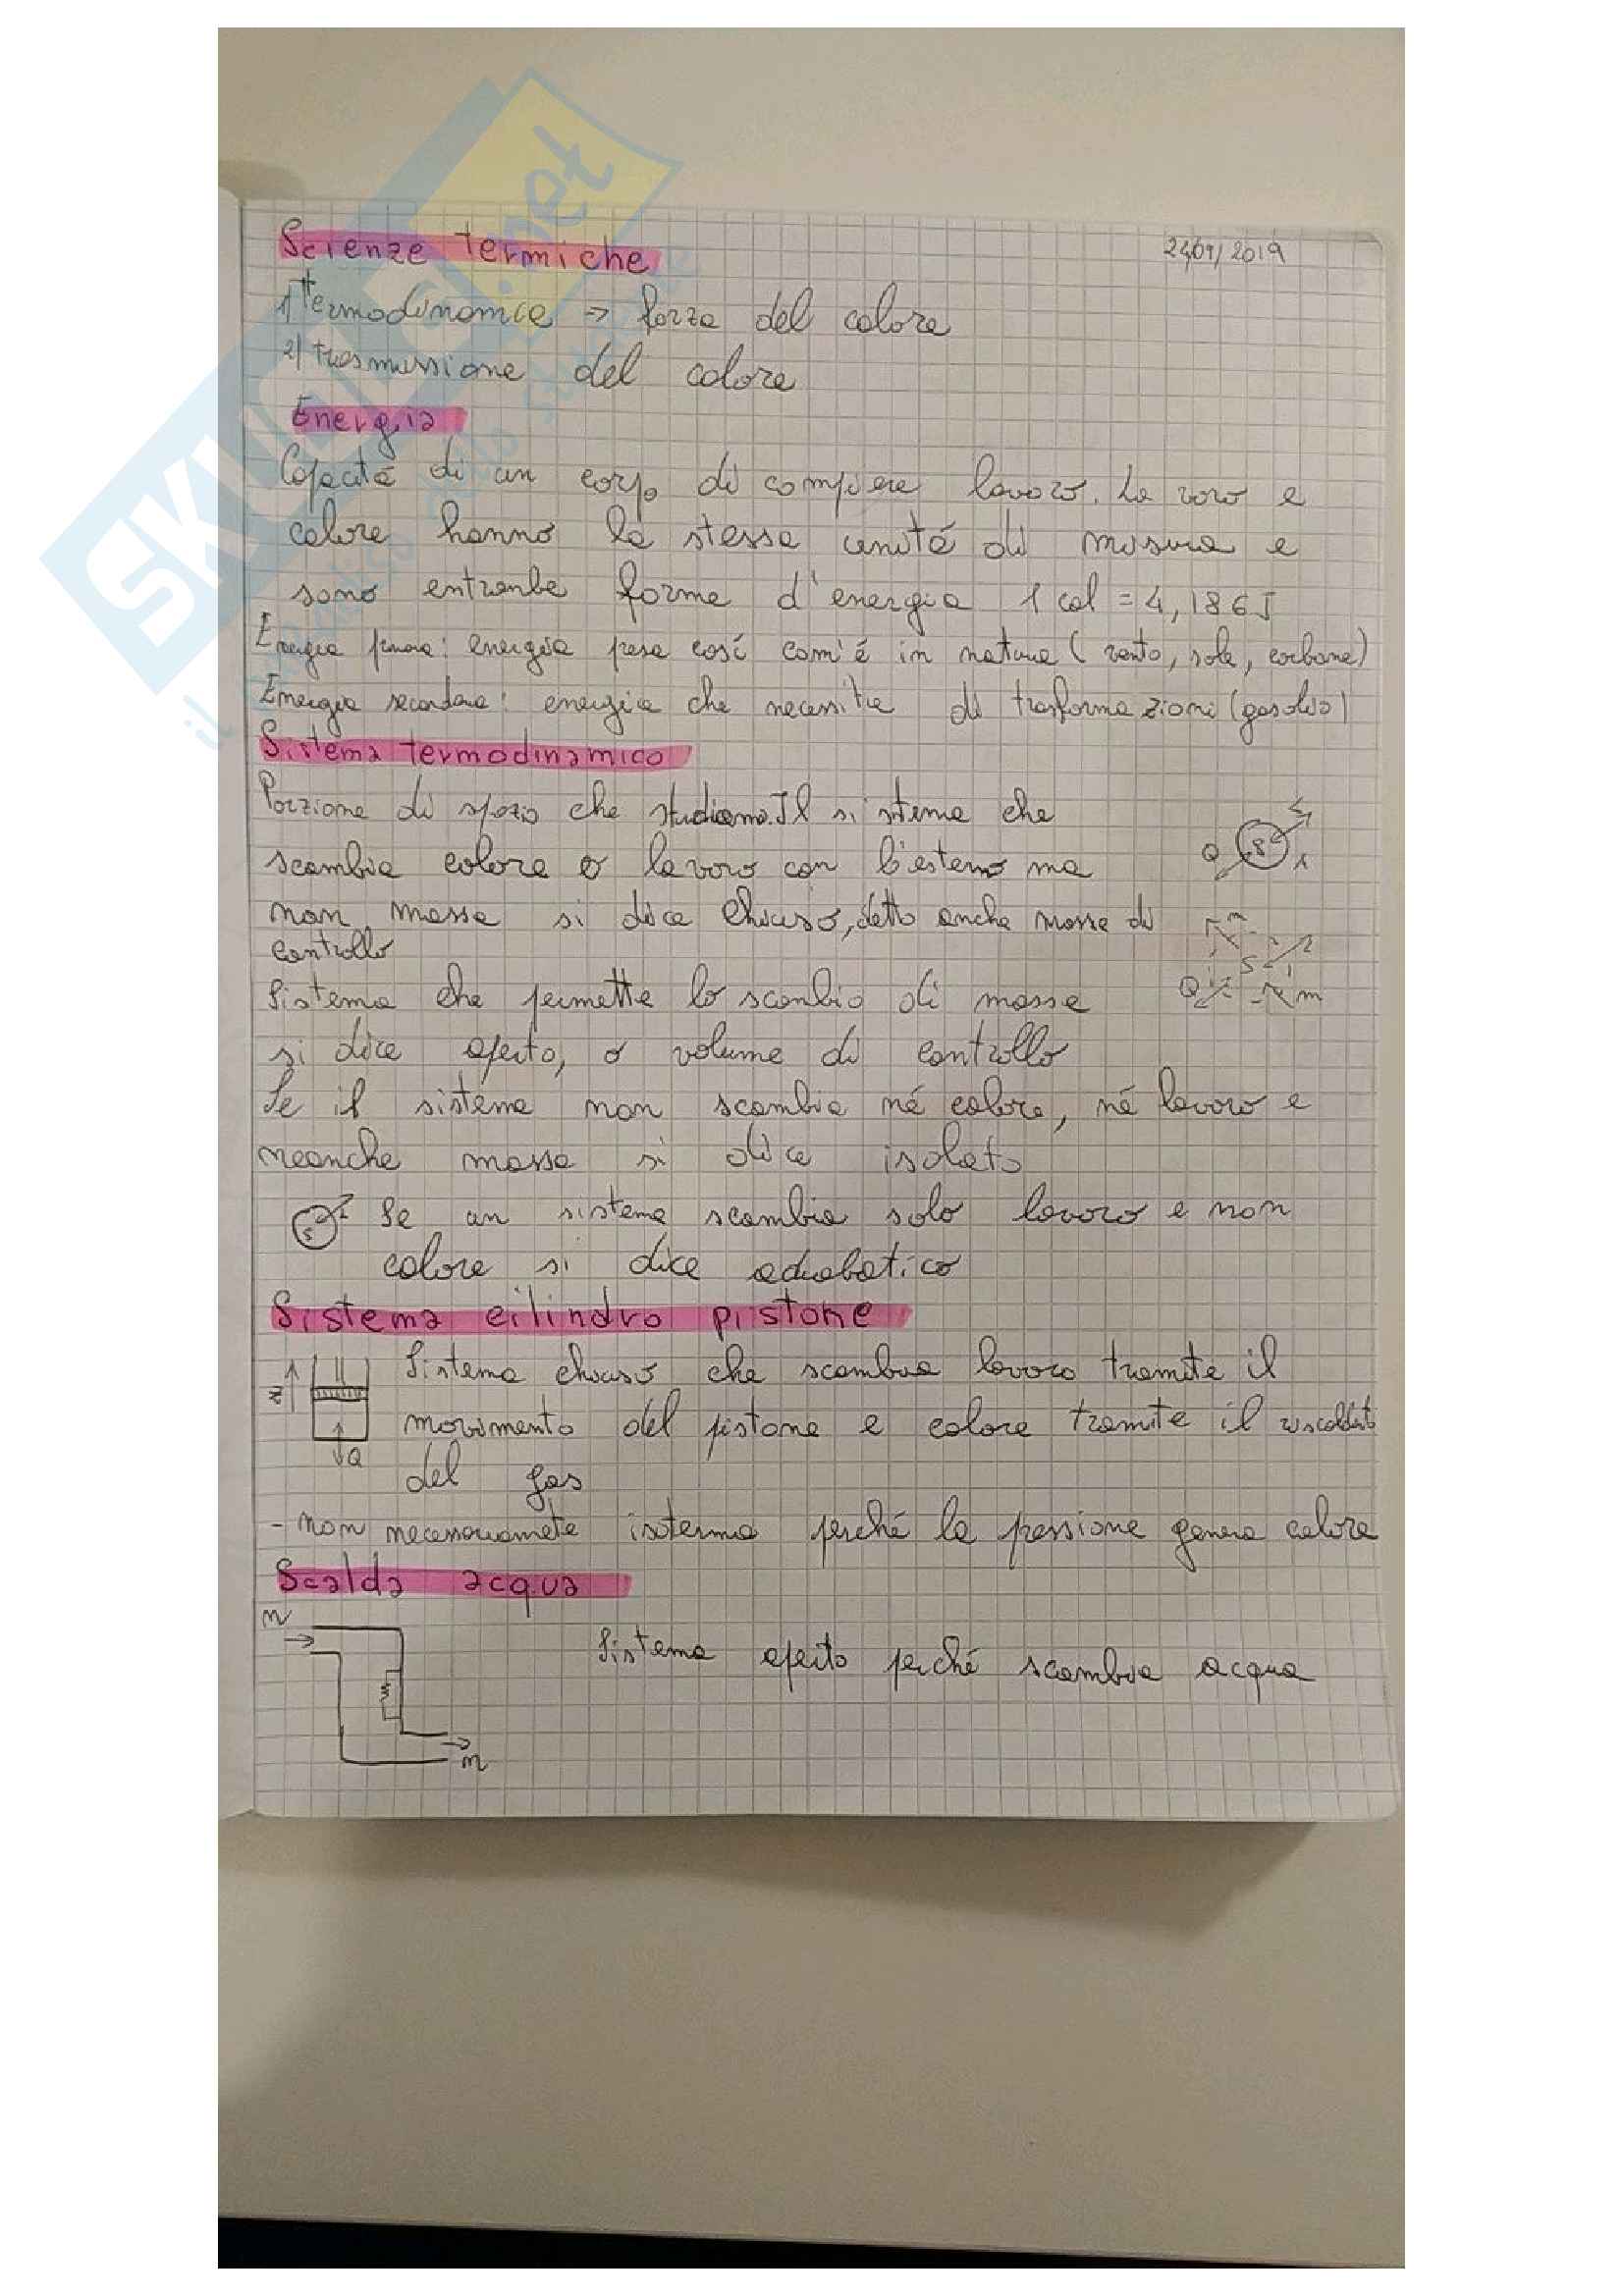 Scienze termiche
24/09/2019
1) termodinamica → forza del calore
2) trasmissione del calore
Energia
Capacitá di un corpo di compiere lavoro. La voro e
calore hanno la stessa unitá di misura e
sono entrambe forme d'energia 1 cal = 4,186J
Energia : energia presa cosí com'é in natura (vento, sole, carbone)
Energia secondaria : energia che necessita di trasformazioni (gasolio)
Sistema termodinamico
Porzione di spazio che studiamo. Il sistema che
scambia calore o lavoro con l'esterno ma
non massa si dice chiuso, detto anche massa di
controllo
Q S L
m S Q m
Sistema che permette lo scambio di massa
si dice aperto, o volume di controllo
Se il sistema non scambia né calore, né lavoro e
neanche massa si dice isolato
S L Se un sistema scambia solo lavoro e non
calore si dice adiabatico
Sistema cilindro pistone
Sistema chiuso che scambia lavoro tramite il
movimento del pistone e calore tramite il
Q
del gas
- non isotermo perché la pressione genera calore
Scalda acqua
m
Sistema aperto perché scambia acqua
m
SKUOLA.net
il